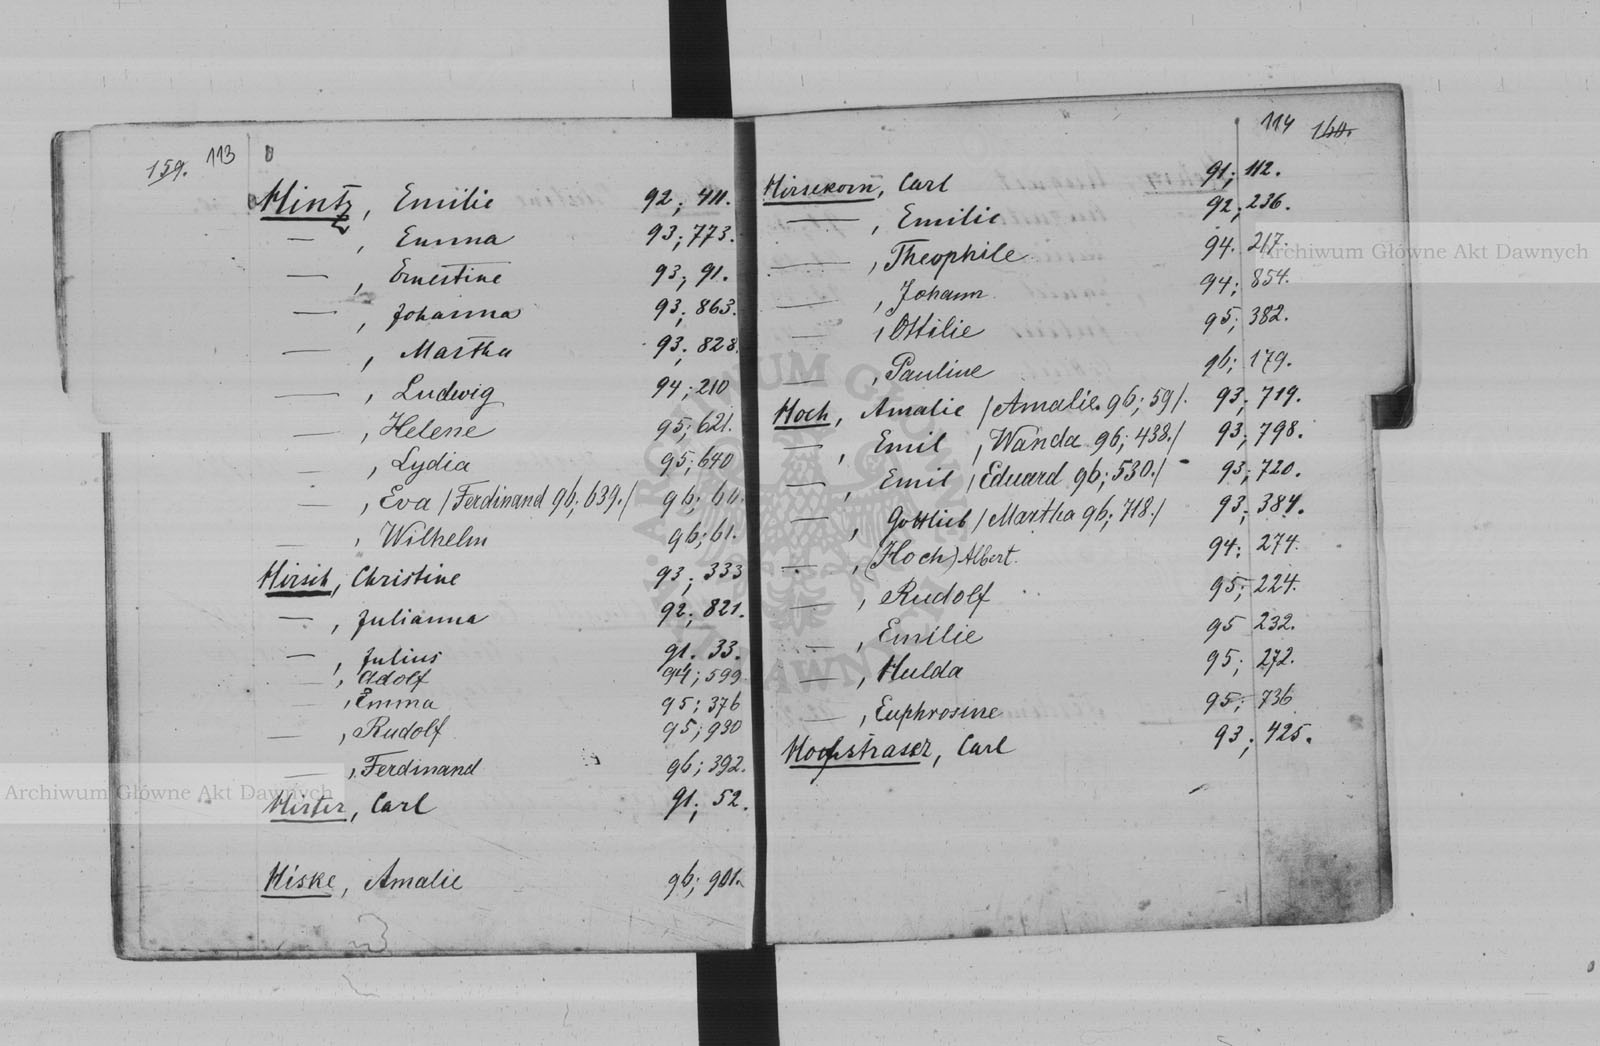 159. 113
Hintz, Emilie 92; 411.
— , Emma 93; 773.
— , Ernestine 93; 91.
— , Johanna 93; 863.
— , Martha 93; 828.
— , Ludwig 94; 210
— , Helene 95; 621.
— , Lydia 95; 640
— , Eva /Ferdinand 96; 639./ 96; 60.
— , Wilhelm 96; 61.
Hirsch, Christine 93; 333
— , Julianna 92; 821.
— , Julius 91. 33.
— , Adolf 94; 599
— , Emma 95; 376
— , Rudolf 95; 930
— , Ferdinand 96; 392.
Hirter, Carl 91; 52.
Hiske, Amalie 96; 901.
114 160.
Hirsekorn, Carl 91; 112.
— , Emilie 92; 236.
— , Theophile 94. 217.
— , Johann 94; 854.
— , Ottilie 95; 382.
— , Pauline 96; 179.
Hoch, Amalie /Amalie. 96; 59/. 93; 719.
— , Emil , Wanda 96; 438./ 93; 798.
— , Emil /Eduard 96; 530./ 93; 720.
— , Gottlieb /Martha 96; 718./ 93; 384.
— , (Hoch) Albert. 94; 274.
— , Rudolf 95; 224.
— , Emilie 95 232.
— , Hulda 95; 272.
— , Euphrosine 95; 736
Hochstrasser, Carl 93; 425.
Archiwum Główne Akt Dawnych
Archiwum Główne Akt Dawnych
ARCHIWUM GŁÓWNE AKT DAWNYCH